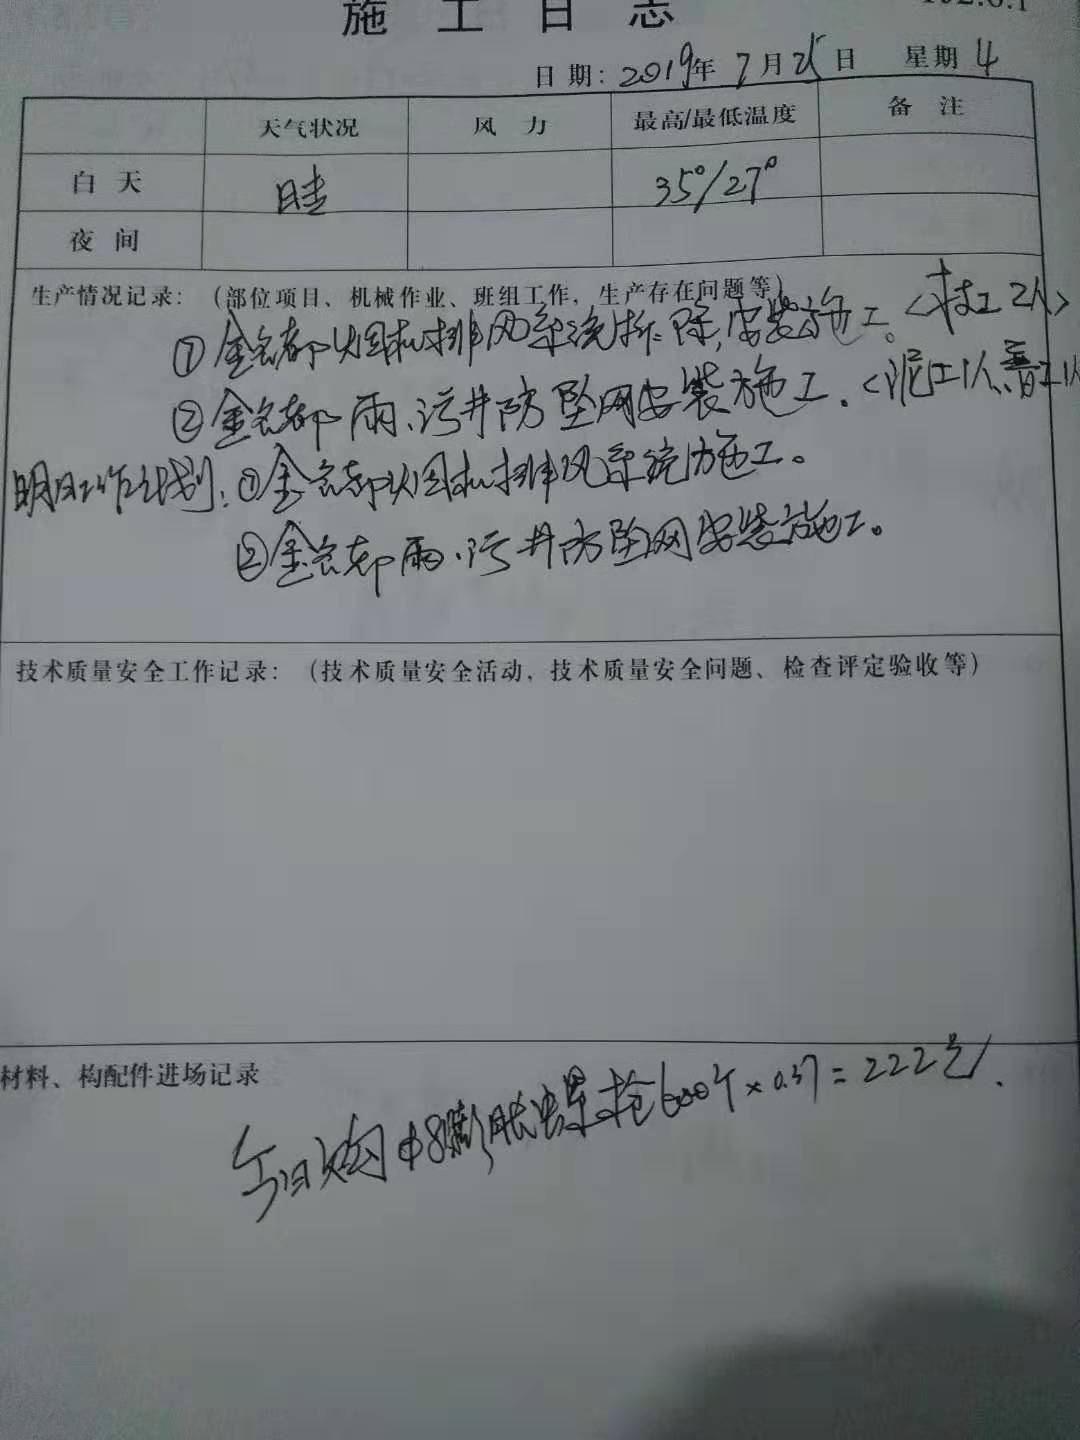 施工日志
日期：2019年7月25日 星期4
天气状况 风力 最高/最低温度 备注
白天 晴 35°/27°
夜间
生产情况记录：（部位项目、机械作业、班组工作，生产存在问题等）
①金都风机排风系统拆除，安装施工。<技工2人>
②金都雨、污井防坠网安装施工。<泥工1人普工1人
明日工作计划：①金都风机排风系统施工。
②金都雨、污井防坠网安装施工。
技术质量安全工作记录：（技术质量安全活动，技术质量安全问题、检查评定验收等）
材料、构配件进场记录
今日购φ8膨胀螺栓600个×0.37=222元.